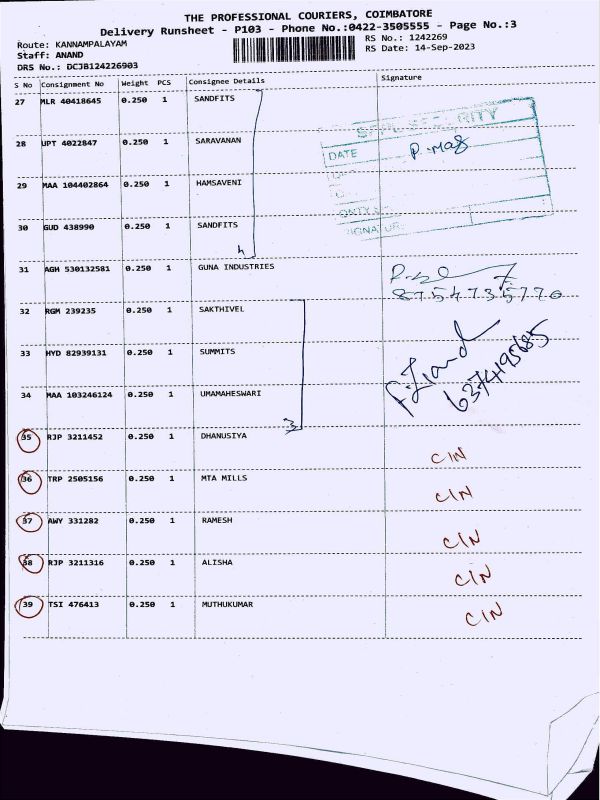 THE PROFESSIONAL COURIERS, COIMBATORE
Delivery Runsheet - P103 - Phone No.:0422-3505555 - Page No.:3
Route: KANNAMPALAYAM
RS No.: 1242269
Staff: ANAND
RS Date: 14-Sep-2023
DRS No.: DCJB124226903
S No Consignment No Weight PCS Consignee Details Signature
27 MLR 40418645 0.250 1 SANDFITS
28 UPT 4022847 0.250 1 SARAVANAN
DATE
29 MAA 104402864 0.250 1 HAMSAVENI
30 GUD 438990 0.250 1 SANDFITS
4
31 AGH 530132581 0.250 1 GUNA INDUSTRIES
8754735770
32 RGM 239235 0.250 1 SAKTHIVEL
33 HYD 82939131 0.250 1 SUMMITS
6374195685
34 MAA 103246124 0.250 1 UMAMAHESWARI
3
35 RJP 3211452 0.250 1 DHANUSIYA CIN
36 TRP 2505156 0.250 1 MTA MILLS CIN
37 AWY 331282 0.250 1 RAMESH CIN
38 RJP 3211316 0.250 1 ALISHA CIN
39 TSI 476413 0.250 1 MUTHUKUMAR CIN